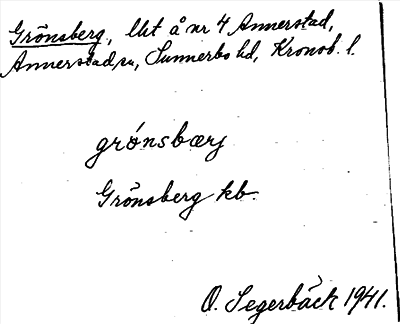 Grönsberg, lht å nr 4 Annerstad,
Annerstad sn, Sunnerbo hd, Kronob. l.
grónsbærj
Grönsberg kb.
O. Segerbäck 1941.